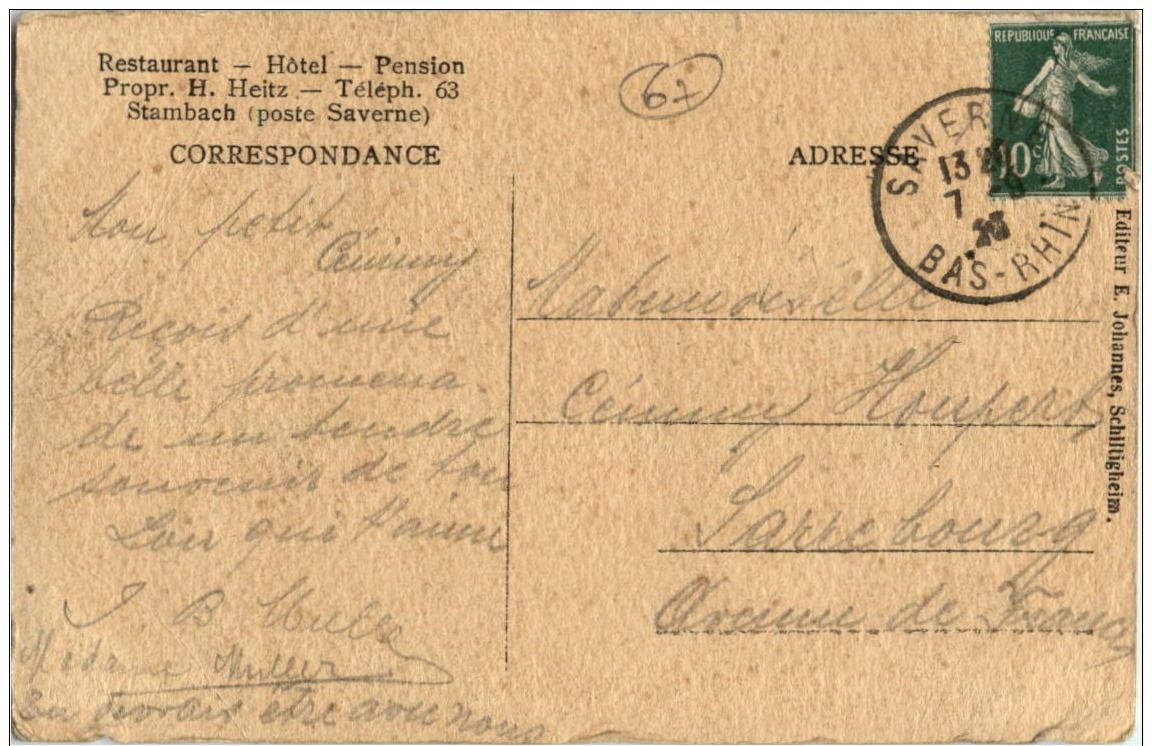 Restaurant – Hôtel – Pension
Propr. H. Heitz – Téléph. 63
Stambach (poste Saverne)
CORRESPONDANCE
67
ADRESSE
REPUBLIQUE FRANÇAISE
10c
POSTES
SAVERNE
13
7
BAS-RHIN
Mon petit
Cémmy
Reçois d'une
belle promena-
de un tendre
souvenir de ton
Lou qui t'aime
J. B Muller
Madame Muller
Tu devrais être avec nous
Mademoiselle
Cémmy Houpert
Sarrebourg
Avenue de France
Editeur E. Johannes, Schiltigheim.